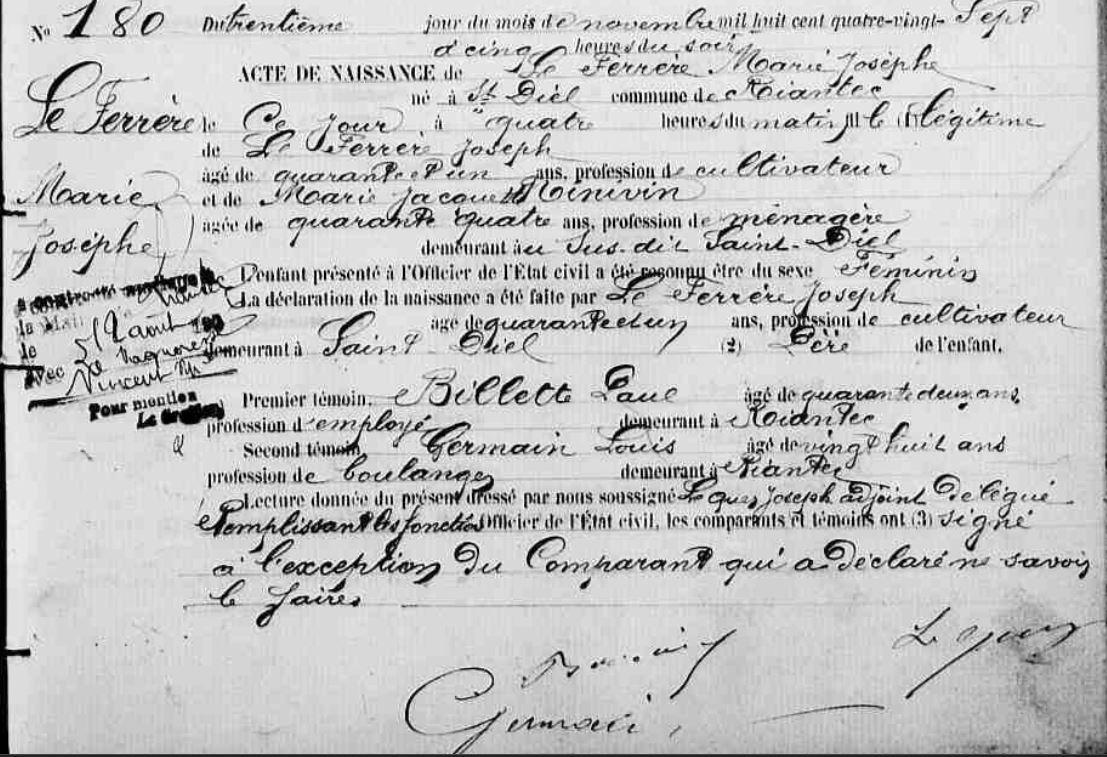 No 180 Du trentième jour du mois de novembre mil huit cent quatre-vingt- Sept
à cinq heures du soir
ACTE DE NAISSANCE de Le Ferrère Marie Josèphe
né à St Diel commune de Riantec
Le Ferrère
Marie
Josèphe
le Ce jour à quatre heures du matin fille (1) légitime
de Le Ferrère Joseph
âgé de quarante et un ans, profession de cultivateur
et de Marie Jacquette Minivin
âgée de quarante quatre ans, profession de ménagère
demeurant au sus-dit Saint-Diel
L'enfant présenté à l'Officier de l'État civil a été reconnu être du sexe Féminin
La déclaration de la naissance a été faite par Le Ferrère Joseph
âgé de quarante et un ans, profession de cultivateur
demeurant à Saint-Diel (2) Père de l'enfant.
a contracté mariage à
la Mairie
de
avec
Vincent M
Pour mention
Le Greffier
Premier témoin, Billette Paul âgé de quarante deux ans,
profession d'employé demeurant à Riantec
Second témoin Germain Louis âgé de vingt huit ans
profession de boulanger demeurant à Riantec
Lecture donnée du présent dressé par nous soussigné Le Quer Joseph adjoint Délégué
Remplissant les fonctions d'Officier de l'État civil, les comparants et témoins ont (3) signé
à l'exception du Comparant qui a déclaré ne savoir
le faire
Le Quer
Germain